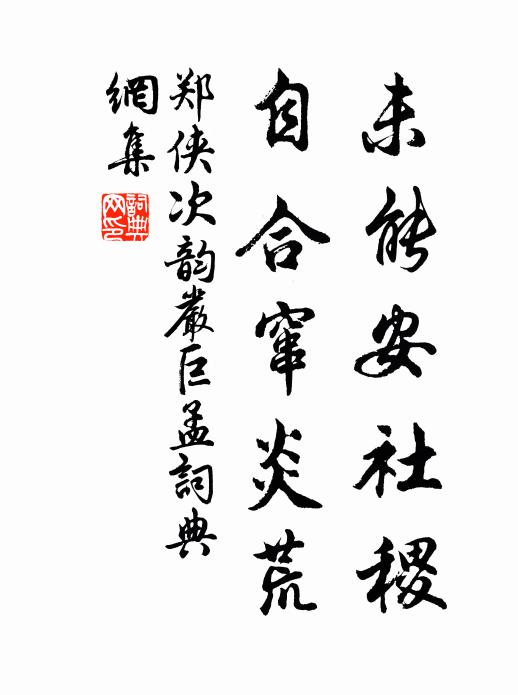 未能安社稷
自合窜炎荒
郑侠次韵嚴巨孟詞典
網集
詞典
网印